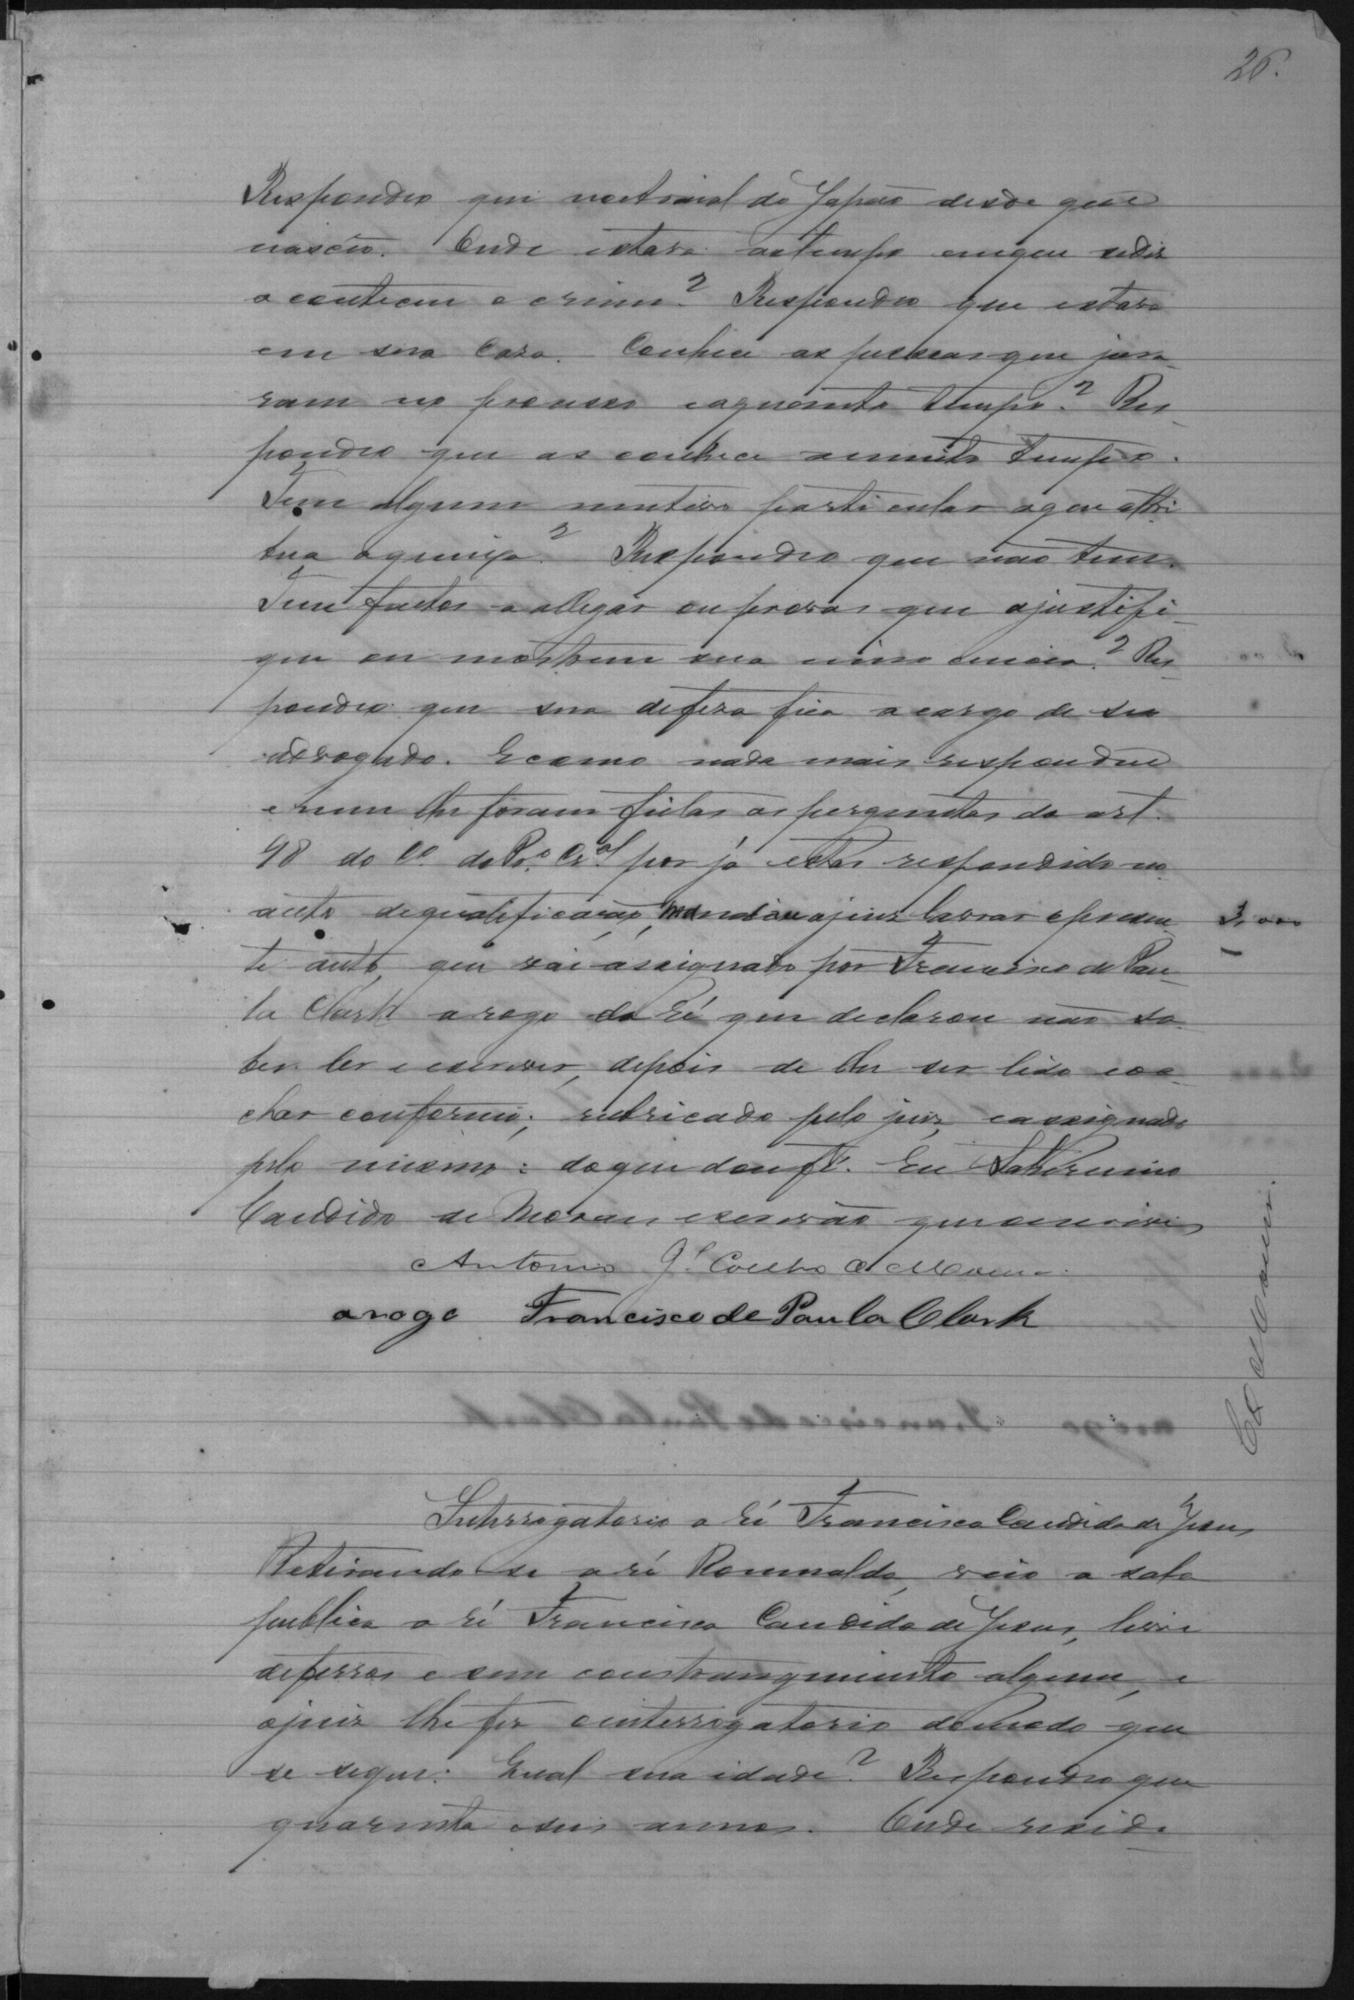 26.
Respondeo que no arraial do Japão desde que
nasceu. Onde estava ao tempo em que se diz
aconteceu o crime? Respondeo que estava
em sua casa. Conhece as pessoas que jura-
ram no processo e a quanto tempo? Res-
pondeo que as conhece a muito tempo.
Tem algum motivo particular a que attri-
bua a queixa? Respondeo que não tem.
Tem factos a allegar ou provas que a justifi-
que ou mostrem sua innocencia? Res-
pondeo que sua defesa fica a cargo de seu
advogado. E como nada mais respondeu
e nem lhe foram feitas as perguntas do art.
98 do Co. do Pro. Cral por já estar respondido no
auto de qualificação, mandou o juiz lavrar o presen-
te auto, que vai assignado por Francisco de Pau-
la Clark a rogo da ré que declarou não sa-
ber ler e escrever, depois de lhe ser lido e o a-
char conforme; rubricado pelo juiz, e assignado
pelo mesmo: do que dou fé. Eu Saturnino
Candido de Moraes escrivão que o escrevi
Antonio Jé Coelho de Moura
a rogo Francisco de Paula Clark
3,000
C. de Moura.
Interrogatorio a ré Francisca Candida de Jesus
Retirando-se a ré Romualda, veio a sala
publica a ré Francisca Candida de Jesus, livre
de ferros e sem constrangimento algum, e
o juiz lhe fez o interrogatorio do modo que
se segue: Qual sua idade? Respondeo que
quarenta e seis annos. Onde reside